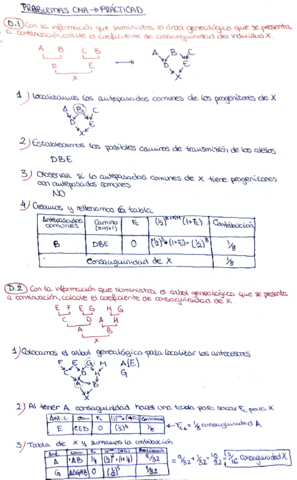 PROBLEMAS CMA → PRÁCTICA D
D.1 Con la información que suministra el árbol genealógico que se presenta
a continuación, calcule el coeficiente de consanguinidad del individuo X.
A B C B A B C
D E D E
X X
1) Localizamos los antepasados comunes de los progenitores de X
A B C
D E
X
2) Establecemos los posibles caminos de transmisión de los alelos
DBE
3) Observar si los antepasados comunes de X tiene progenitores
con antepasados comunes
NO
4) Creamos y rellenamos la tabla
Antepasados comunes Camino (n+m+1) Fz (1/2)ⁿ⁺ᵐ⁺¹ (1+Fz) Contribución
B DBE 0 (1/2)³ (1+0) = (1/2)³ 1/8
Consanguinidad de X 1/8
D.2 Con la información que suministra el árbol genealógico que se presenta
a continuación, calcule el coeficiente de consanguinidad de X
E F E G H G
D A H
A B
X
1) Colocamos el árbol genealógico para localizar los ancestros
F E G H A{G}
D
A B
X
2) Al tener A consanguinidad haces una tabla para sacar Fz para X
E 0 (1/2)³ 1/8 ← FA = 1/8 consanguinidad A
3) Tabla de X y sumamos la contribución
A AB 1/8 9/32
G 0 (1/2)⁵ 1/32
= 9/32 + 1/32 = 10/32 consanguinidad X